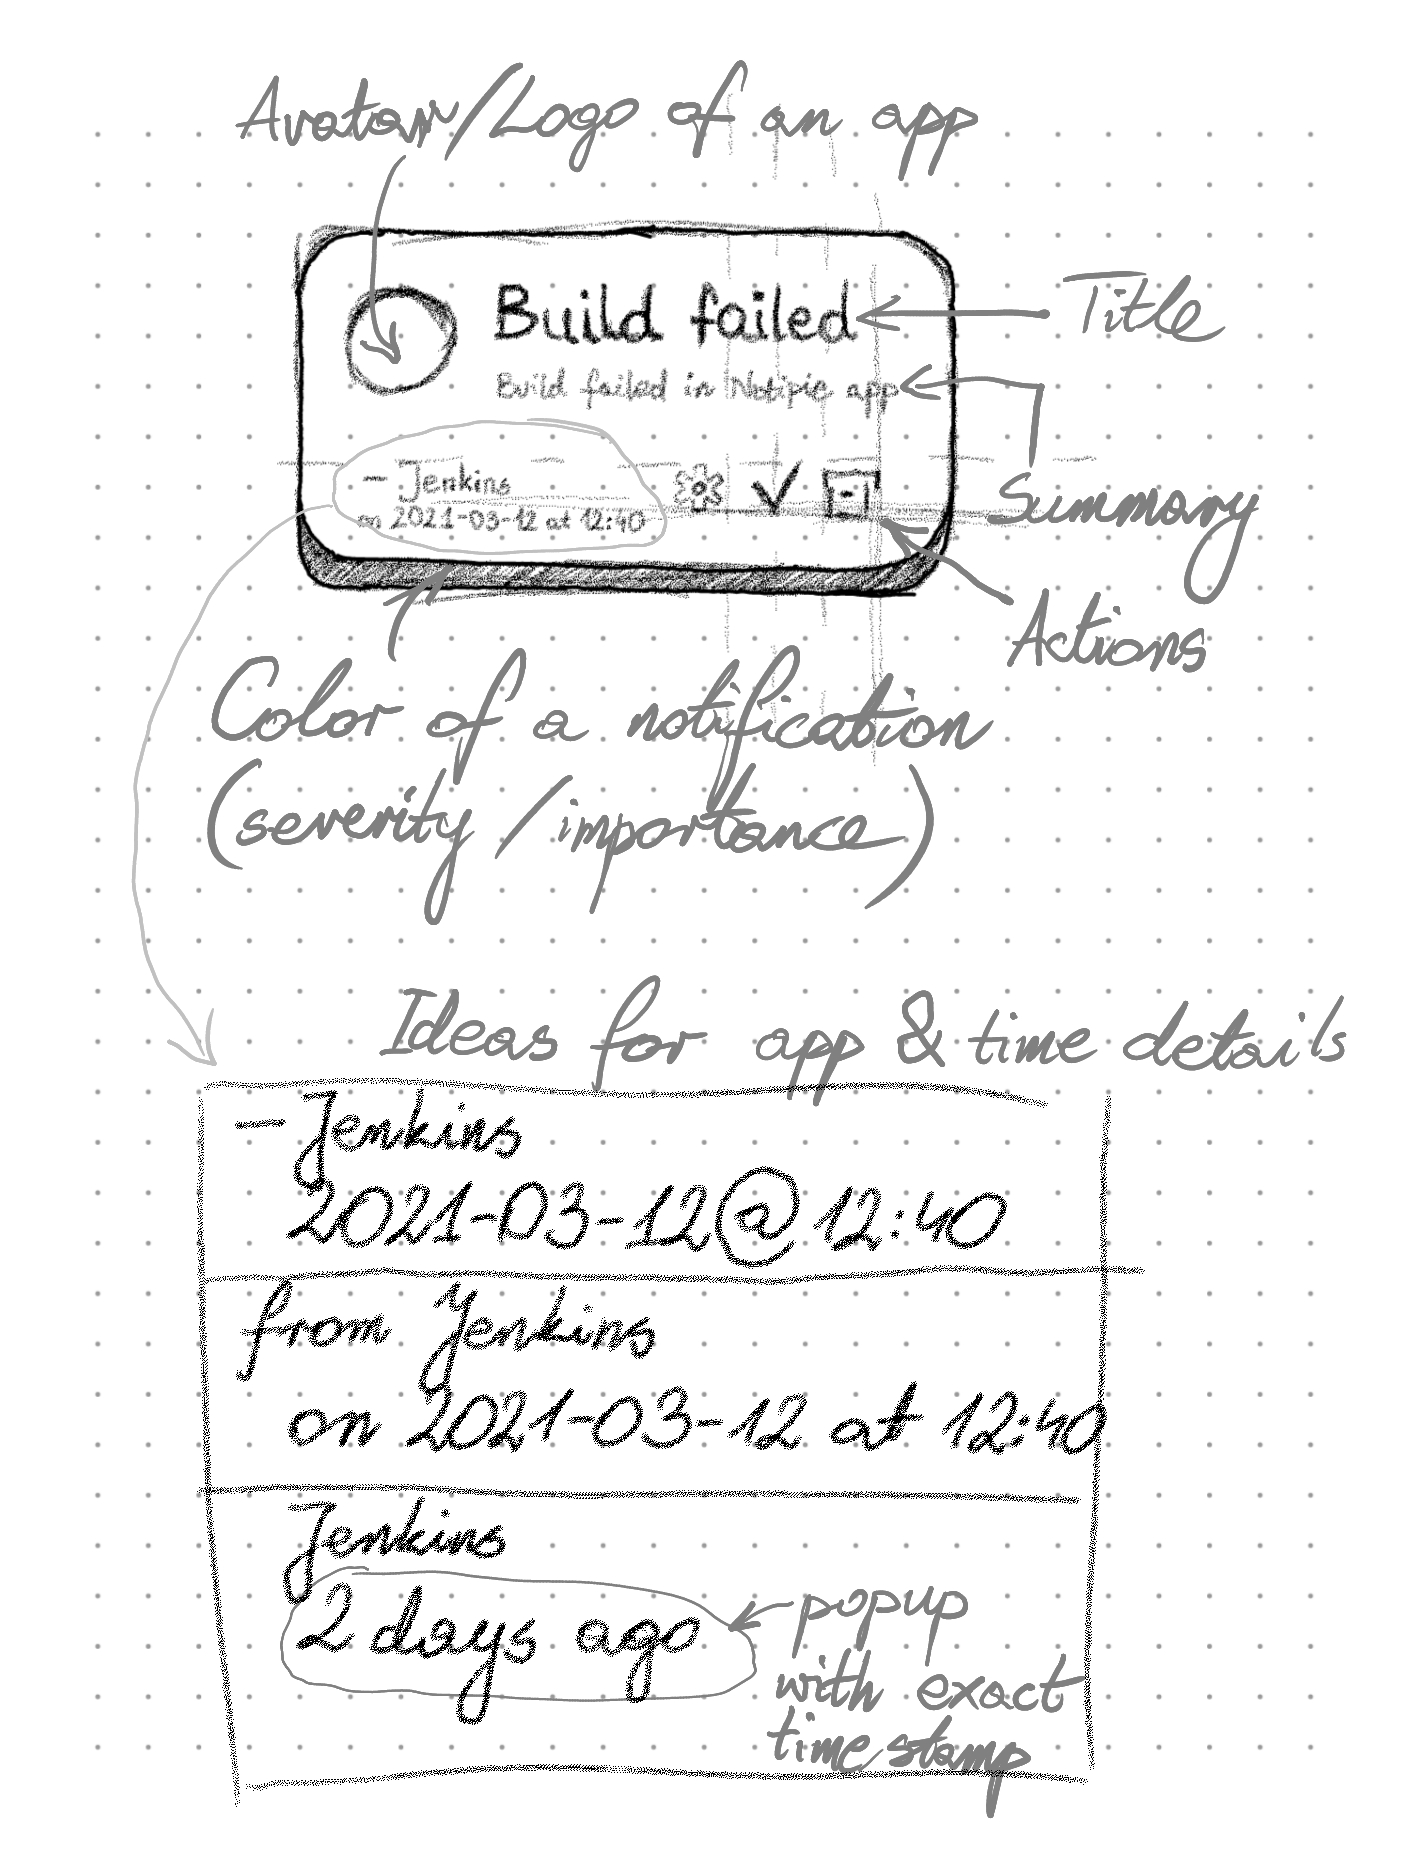 Avatar/Logo of an app
Build failed
Title
Build failed in Notipie app
– Jenkins
on 2021-03-12 at 12:40
Summary
Actions
Color of a notification
(severity/importance)
Ideas for app & time details
– Jenkins
2021-03-12@12:40
from Jenkins
on 2021-03-12 at 12:40
Jenkins
2 days ago
popup
with exact
timestamp